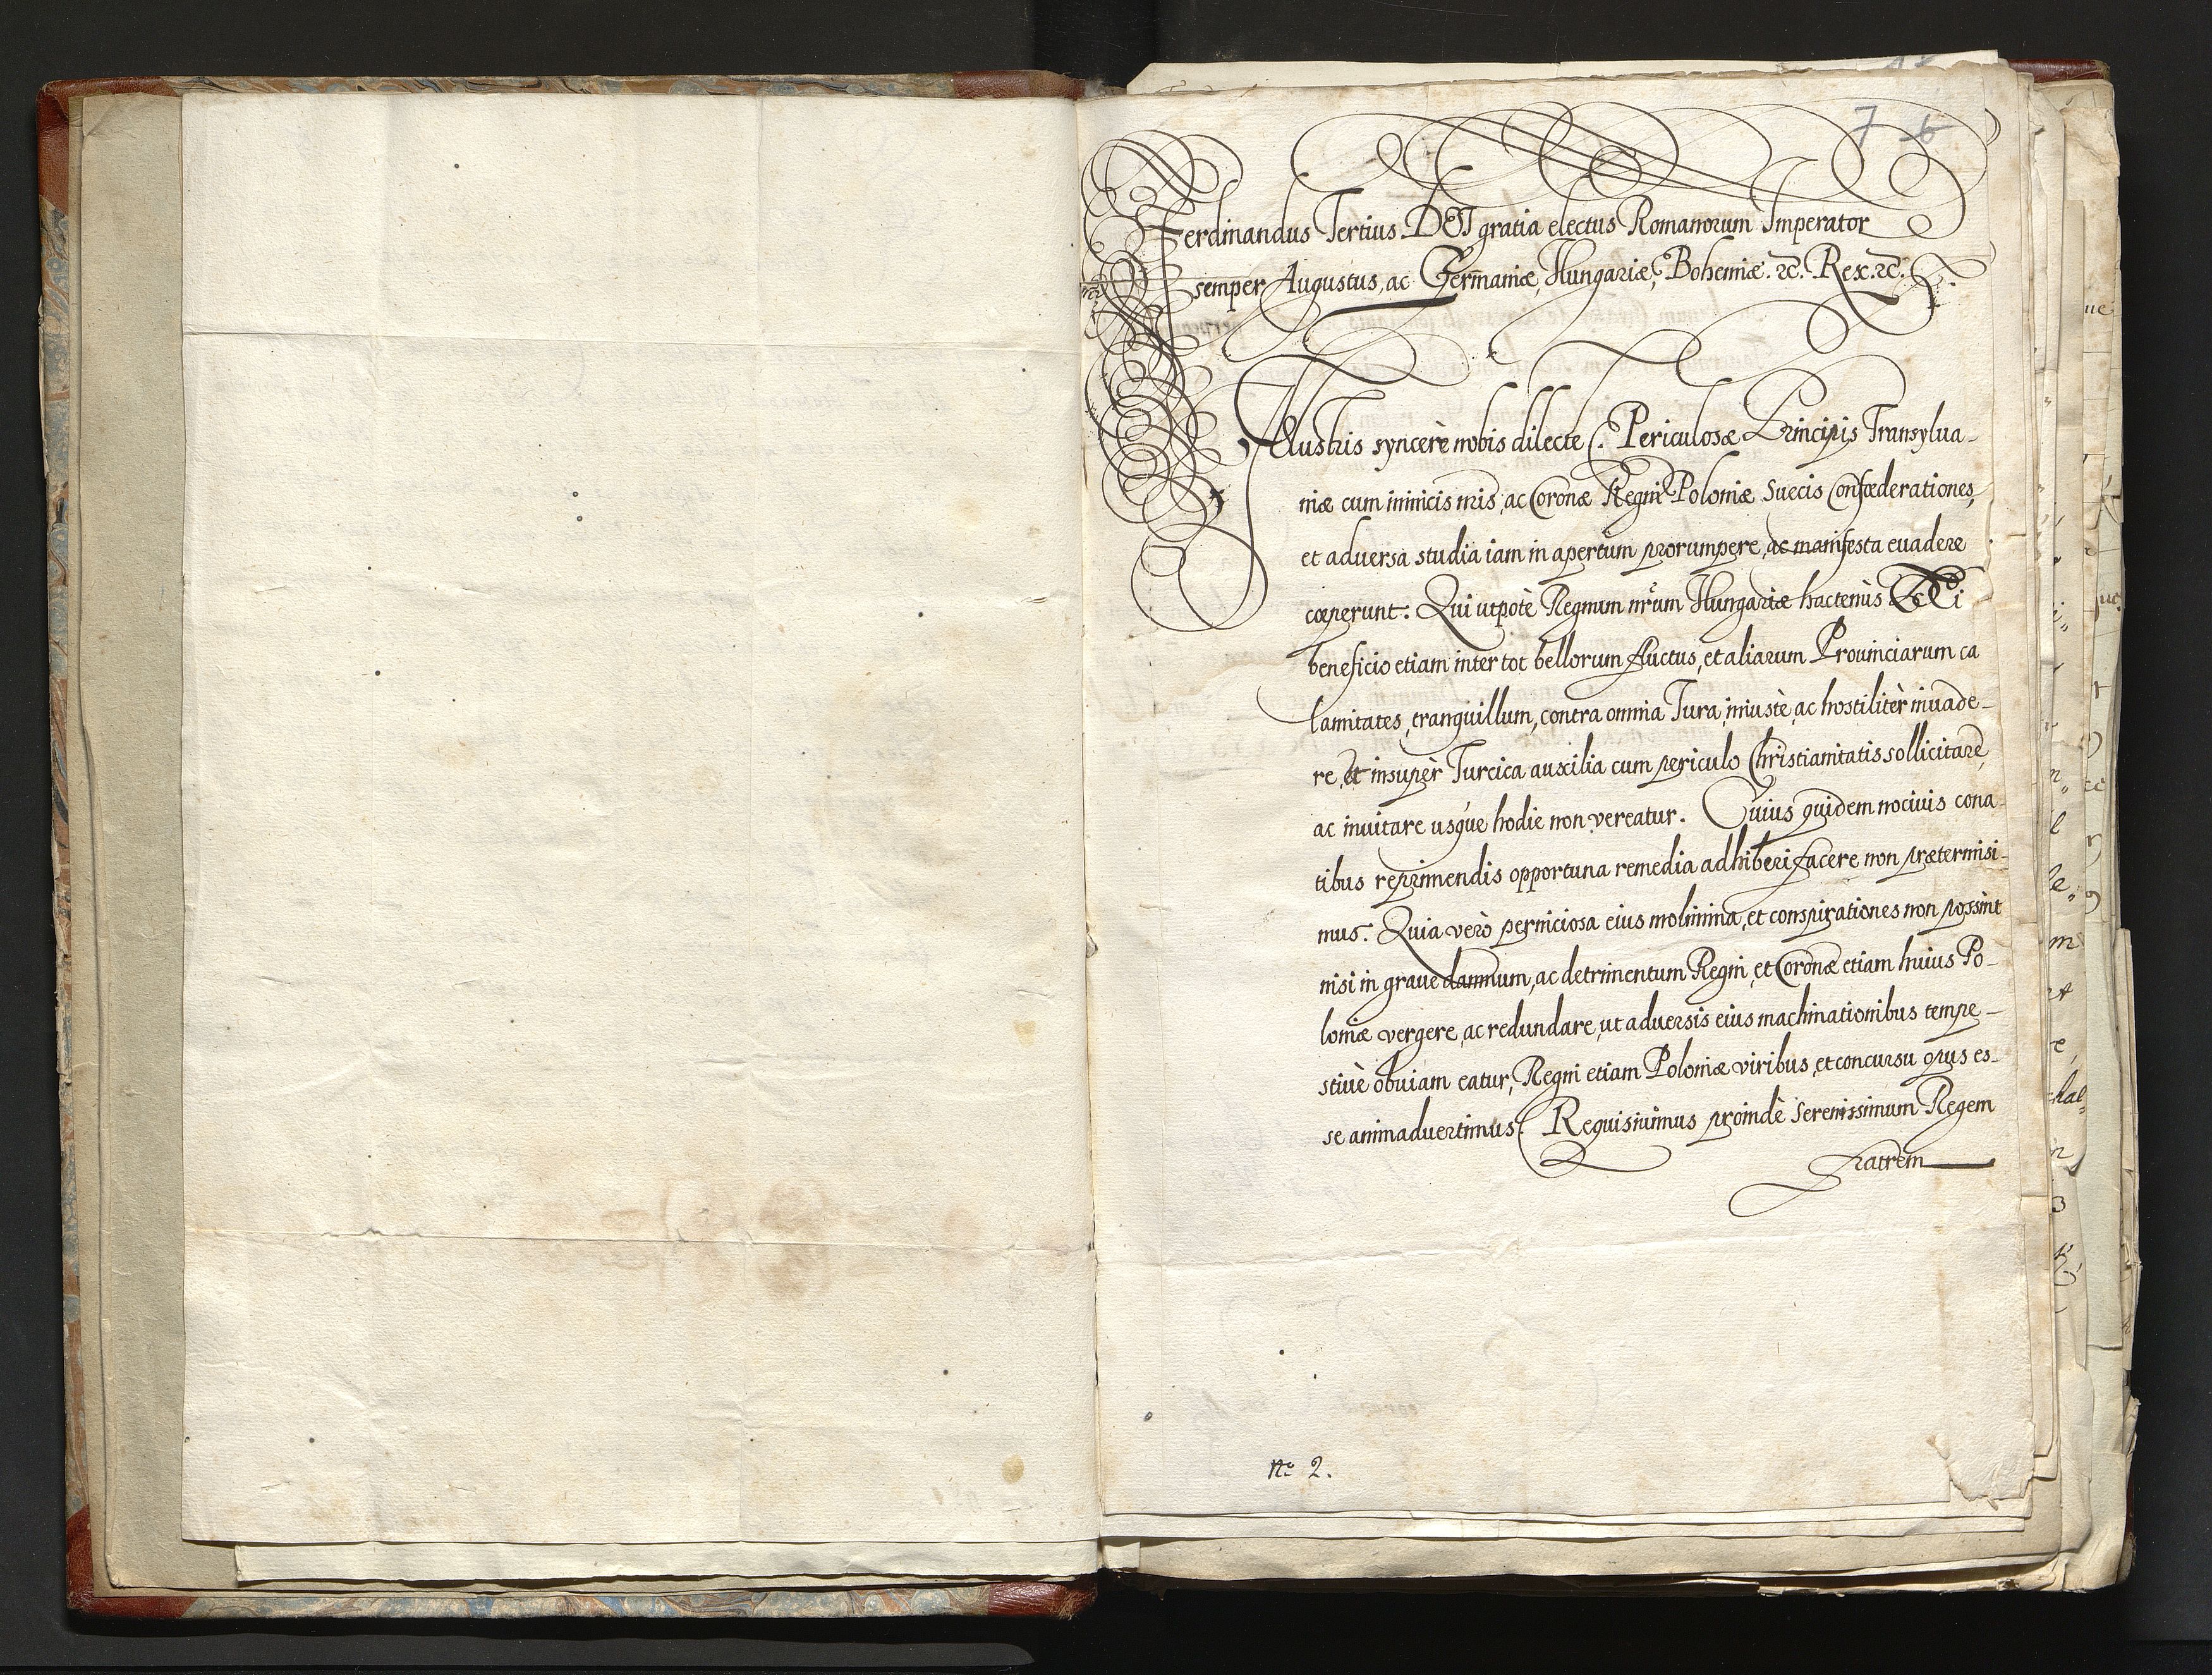 7 6
Ferdinandus Tertius DEI gratia electus Romanorum Imperator
semper Augustus, ac Germaniæ, Hungariæ, Bohemiæ. &c. Rex. &c.
Illustris syncerè nobis dilecte. Periculosæ Principis Transylua-
niæ cum inimicis nris, ac Coronæ Regni Poloniæ Suecis Confœderationes,
et aduersa studia iam in apertum prorumpere, ac manifesta euadere
cœperunt: Qui utpotè Regnum nrum Hungariæ hactenùs DEI
beneficio etiam inter tot bellorum fluctus, et aliarum Prouinciarum ca
lamitates, tranquillum, contra omnia Iura, iniustè, ac hostilitèr inuade-
re, et insupèr Turcica auxilia cum periculo Christianitatis sollicitare,
ac inuitare usque hodie non vereatur. Cuius quidem nociuis cona-
tibus reprimendis opportuna remedia adhiberi facere non prætermisi-
mus. Quia verò perniciosa eius molimina, et conspirationes non possint
nisi in graue damnum, ac detrimentum Regni, et Coronæ etiam huius Po-
loniæ vergere, ac redundare, ut aduersis eius machinationibus tempe-
stiuè obuiam eatur, Regni etiam Poloniæ viribus, et concursu opus es-
se animaduertimus. Requisiuimus proindè Serenissimum Regem
Fratrem
No 2.